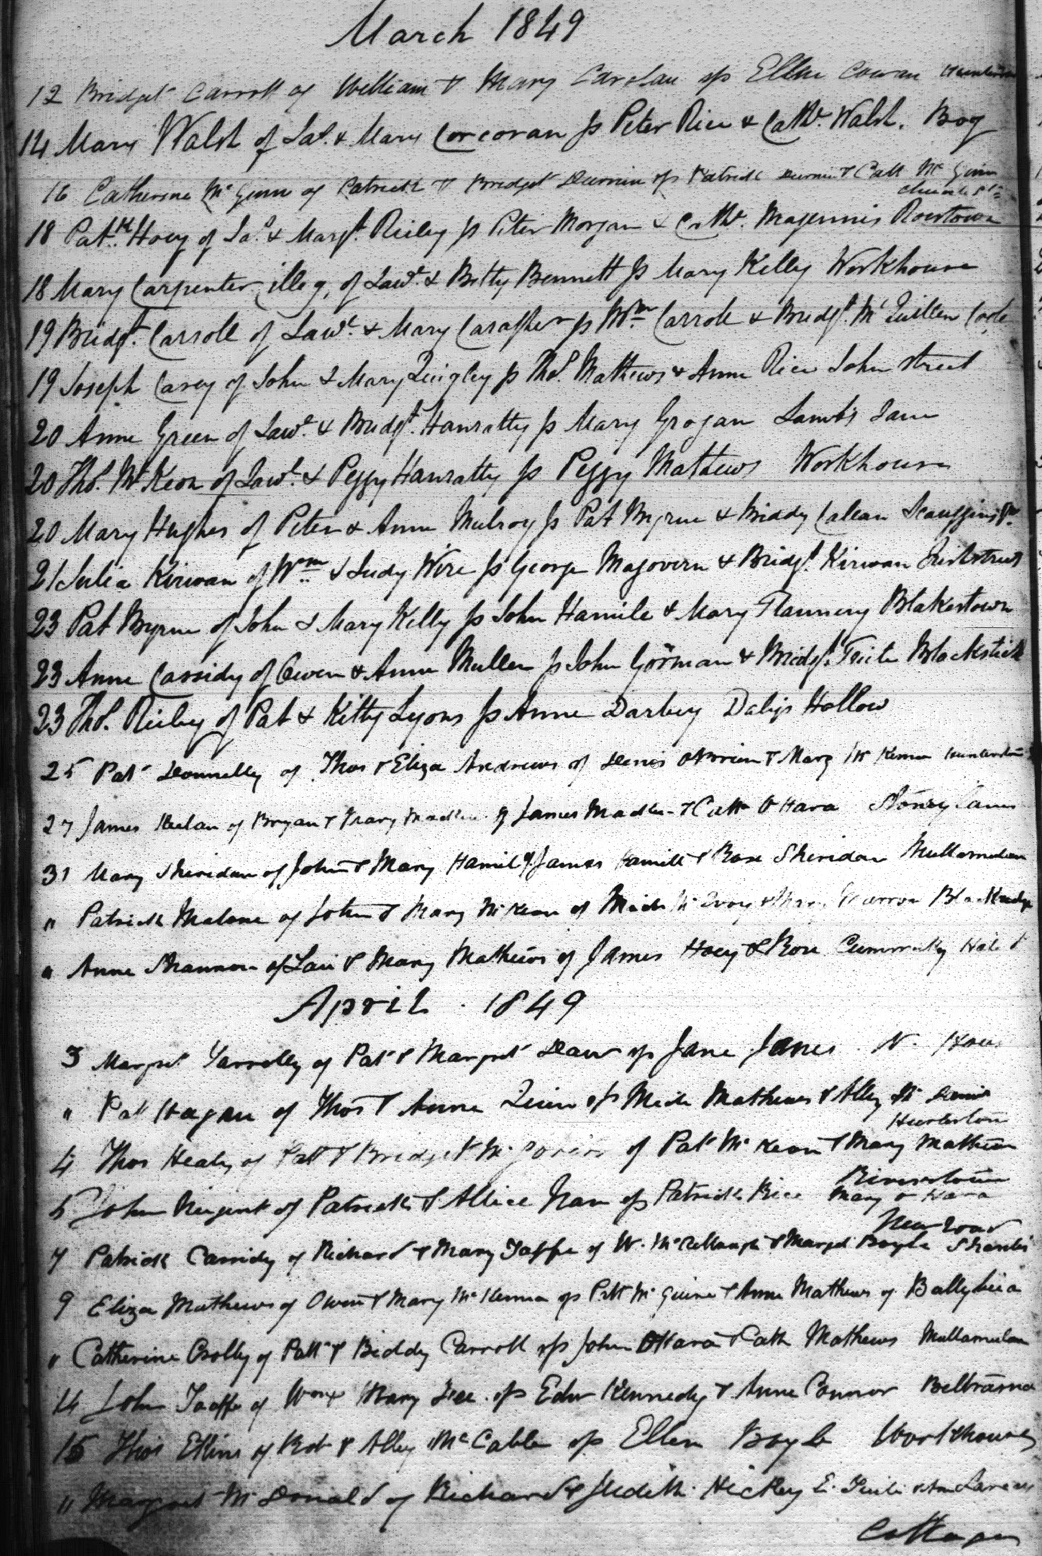 March 1849
12 Bridget Carroll of William & Mary Carolan sps Ellen Cowan
14 Mary Walsh of Jas. & Mary Corcoran Sp Peter Rice & Cath. Walsh. Bog
16 Catherine McGinn of Patrick & Bridget Durnin sps Patrick Durnin & Cath McGinn
18 Patk. Hoey of Jas. & Margt. Reiley Sp Peter Morgan & Cath. Magennis Roestown
18 Mary Carpenter illeg. of Lawe. & Betty Bennett Sp Mary Kelly Workhouse
19 Bridgt. Carroll of Lawe. & Mary Sp Wm Carroll & Bridgt. McQuillen
19 Joseph Carey of John & Mary Quigley Sp Thos. Mathews & Anne Rice John Street
20 Anne Green of Lawe. & Bridgt. Hanratty Sp Mary Grogan Lambs Lane
20 Thos. McKeon of Lawe. & Peggy Hanratty Sp Peggy Mathews Workhouse
20 Mary Hughes of Peter & Anne Mulroy Sp Pat Byrne & Biddy
21 Julia Kirwan of Wm & Judy Wire Sp George Magovern & Bridgt. Kirwan
23 Pat Byrne of John & Mary Kelly Sp John Hamile & Mary Flannery Blakestown
23 Anne Cassidy of Owen & Anne Mullen Sp John Gorman & Bridgt. Blackstick
23 Thos. Rieley of Pat & Kitty Lyons Sp Anne Darbey Dalys Hollow
25 Pat Donnelly of Thos & Eliza Andrews of Denis OBrien & Mary
27 James of Bryan & of James & Cath OHara Stoney Lane
31 Mary Sheridan of John & Mary Hamill of James Hamill & Rose Sheridan Mullamelan
" Patrick Malone of John & Mary McKeon of Mich McEvoy
" Anne Shannon of Law & Mary Mathews of James Hoey & Rose
April 1849
3 Margret of Pat & Margret sps Jane Janes
" Pat Hagan of Thos & Anne Quin sps Mich Mathews & Alley
4 Thos Healy of Patt & Bridget of Pat McKeon & Mary Mathews
Riverstown
5 John Nugent of Patrick & Allice sps Patrick Rice Mary OHara
New Road
7 Patrick Cassidy of Richard & Mary Taffe of W. McCullaugh & Margt Boyle
9 Eliza Mathews of Owen & Mary McKenna sps Patt McGuire & Anne Mathews of
" Catherine Crolly of Patt & Biddy Carroll sps John OHara & Cath Mathews Mullamelan
14 John Taaffe of Wm & Mary sps Edw Kennedy & Anne Connor
15 Thos of Robt & Alley McCabe sps Ellen Boyle Workhouse
" Margret McDonald of Richard & Judith Hickey
Cottages